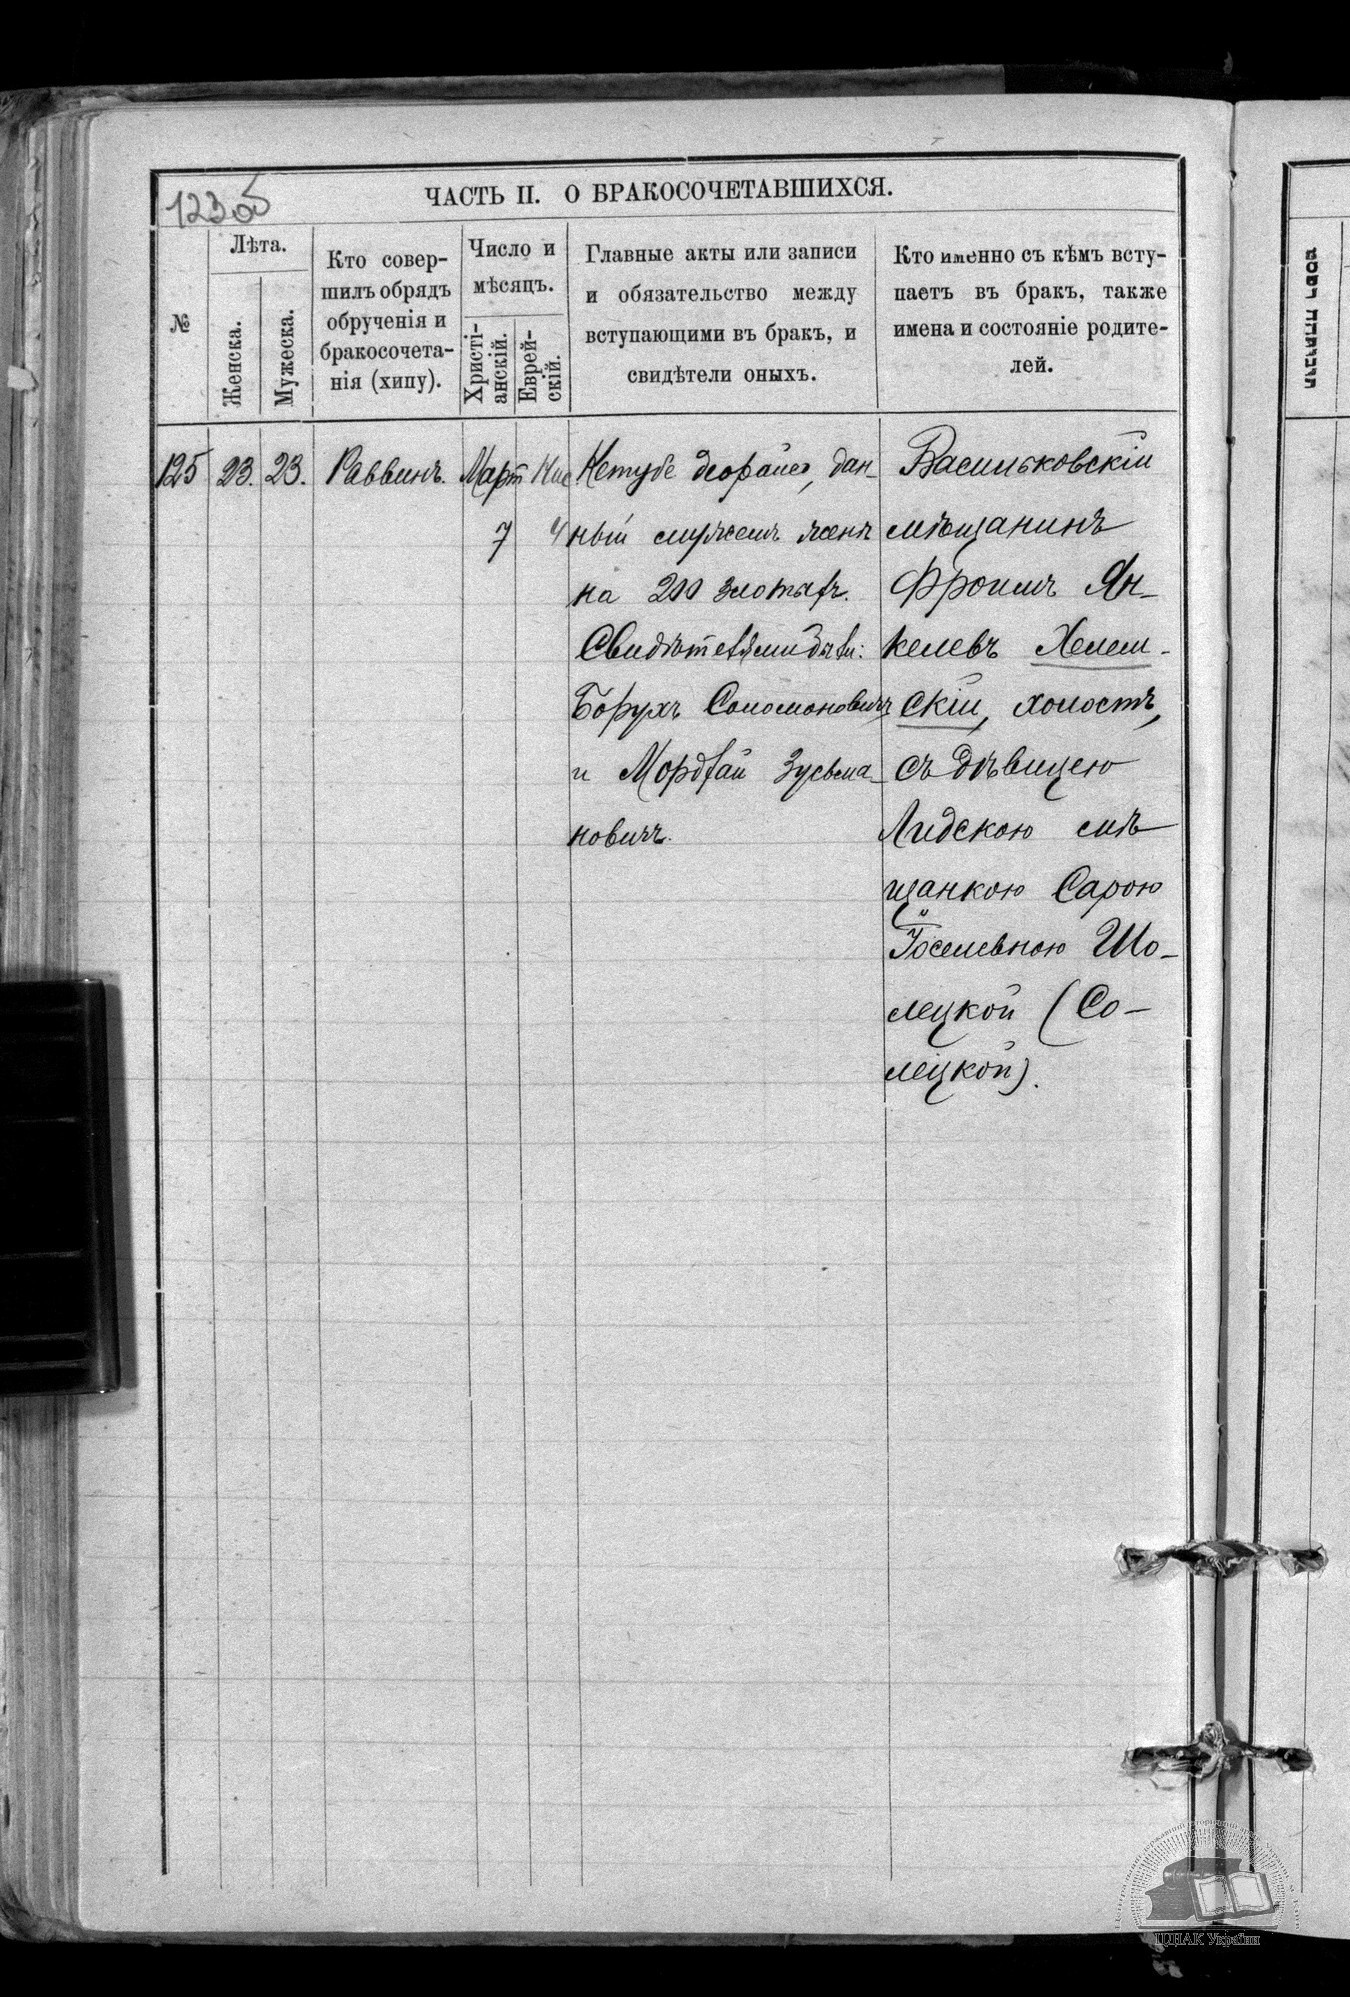 123 об
ЧАСТЬ II. О БРАКОСОЧЕТАВШИХСЯ.
№
Лѣта.
Женска.
Мужеска.
Кто совер-
шилъ обрядъ
обрученія и
бракосочета-
нія (хипу).
Число и
мѣсяцъ.
Христі-
анскій.
Еврей-
скій.
Главные акты или записи
и обязательство между
вступающими въ бракъ, и
свидѣтели оныхъ.
Кто именно съ кѣмъ всту-
паетъ въ бракъ, также
имена и состояніе родите-
лей.
125 23. 23. Раввинъ. Март Нис
7 4
Кетубе деорайсо, дан-
ный мужемъ женѣ
на 200 злотыхъ.
Свидѣтелями были:
Борухъ Соломоновичъ
и Мордхай Зусьма-
новичъ.
Васильковскій
мѣщанинъ
Фроимъ Ян-
келевъ Хелем-
скій, холостъ,
съ дѣвицею
Лидскою мѣ-
щанкою Сарою
Іоселевною Шо-
лецкой (Со-
лецкой).
ЦДІАК України